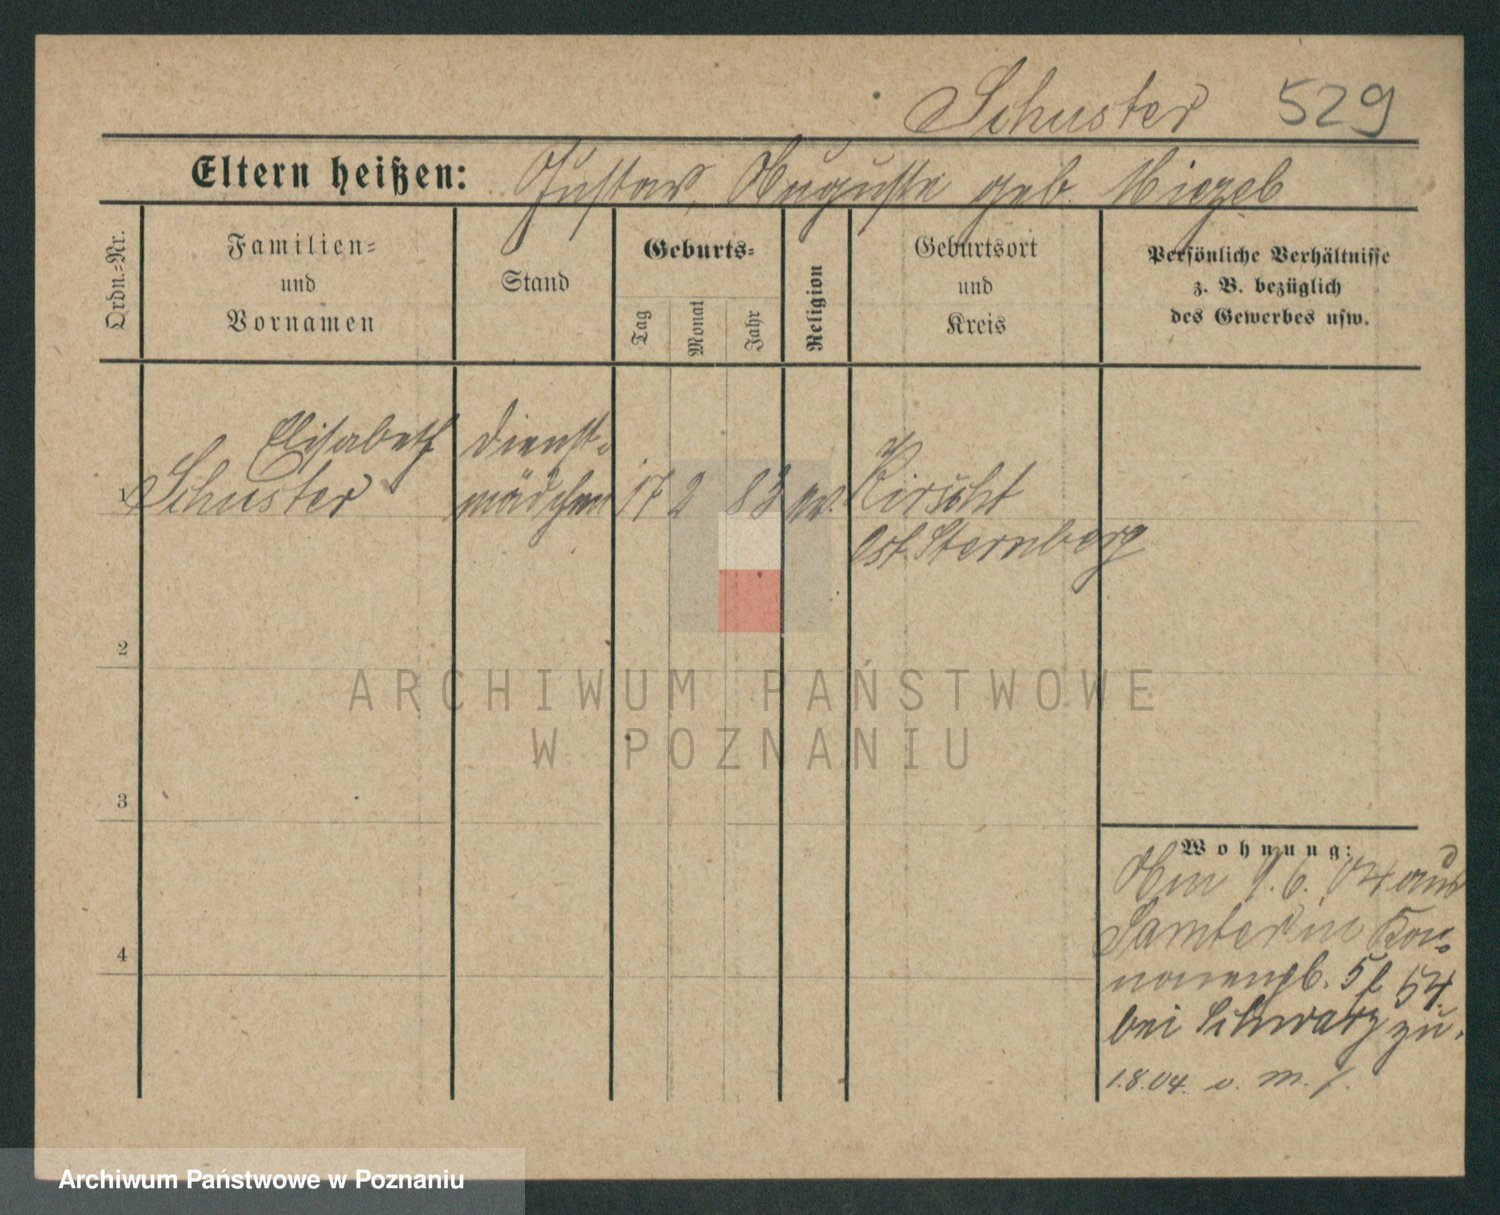 Schuster 529
Eltern heißen: Gustav, Auguste geb.
Ordn.=Nr.
Familien=
und
Vornamen
Stand
Geburts=
Tag
Monat
Jahr
Religion
Geburtsort
und
Kreis
Persönliche Verhältnisse
z. B. bezüglich
des Gewerbes usw.
Elisabeth
1 Schuster
Dienst=
mädchen
17 2 83 ev.
Kirscht
Ost Sternberg
2
ARCHIWUM PAŃSTWOWE
W POZNANIU
3
Wohnung:
Am 9.6. 04 aus
Samter in Ka=
nonenpl. 5
bei Schwarz zu.
1.8.04.
4
Archiwum Państwowe w Poznaniu